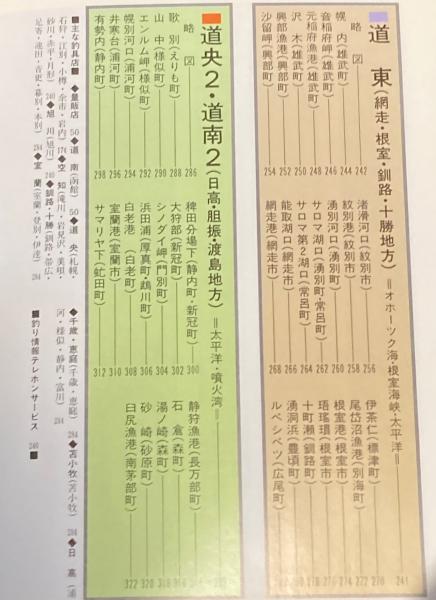 ■道東(網走・根室・釧路・十勝地方)＝オホーツク海・根室海峡・太平洋＝ 241
略図 242
幌内(雄武町) 244
音稲府岬(雄武町) 246
元稲府漁港(雄武町) 248
沢木(雄武町) 250
興部漁港(興部町) 252
沙留岬(興部町) 254
渚滑河口(紋別市) 256
紋別港(紋別市) 258
湧別河口(湧別町) 260
サロマ湖口(湧別町・常呂町) 262
サロマ第2湖口(常呂町) 264
能取湖口(網走市) 266
網走港(網走市) 268
伊茶仁(標津町) 270
尾岱沼漁港(別海町) 272
根室港(根室市) 274
珸瑤瑁(根室市) 276
十町瀬(釧路町) 278
湧洞浜(豊頃町) 280
ルベシベツ(広尾町) 282
■道央2・道南2(日高・胆振・渡島地方)＝太平洋・噴火湾＝
略図 286
歌別(えりも町) 288
山中(様似町) 290
エンルム岬(様似町) 292
幌別河口(浦河町) 294
井寒台(浦河町) 296
有勢内(静内町) 298
稗田分場下(静内町・新冠町) 300
大狩部(新冠町) 302
シノダイ岬(門別町) 304
浜田浦(厚真町・鵡川町) 306
白老港(白老町) 308
室蘭港(室蘭市) 310
サマリヤ下(虻田町) 312
静狩漁港(長万部町)
石倉(森町)
湯ノ崎(森町) 318
砂崎(砂原町) 320
臼尻漁港(南茅部町) 322
■主な釣具店■
◆量販店 50 ◆道南(函館) 50 ◆道央(札幌・
石狩・江別・小樽・余市・岩内) 174 ◆空知(滝川・岩見沢・美唄・
砂川・赤平・月形) 240 ◆旭川(旭川) 240 ◆釧路・十勝(釧路・帯広・
足寄・池田・音更・幕別・本別) 284 ◆室蘭(室蘭・登別・伊達) 284
◆千歳・恵庭(千歳・恵庭) 284 ◆苫小牧(苫小牧) 284 ◆日高(浦
河・様似・静内・富川) 284
■釣り情報テレホンサービス 240 ■